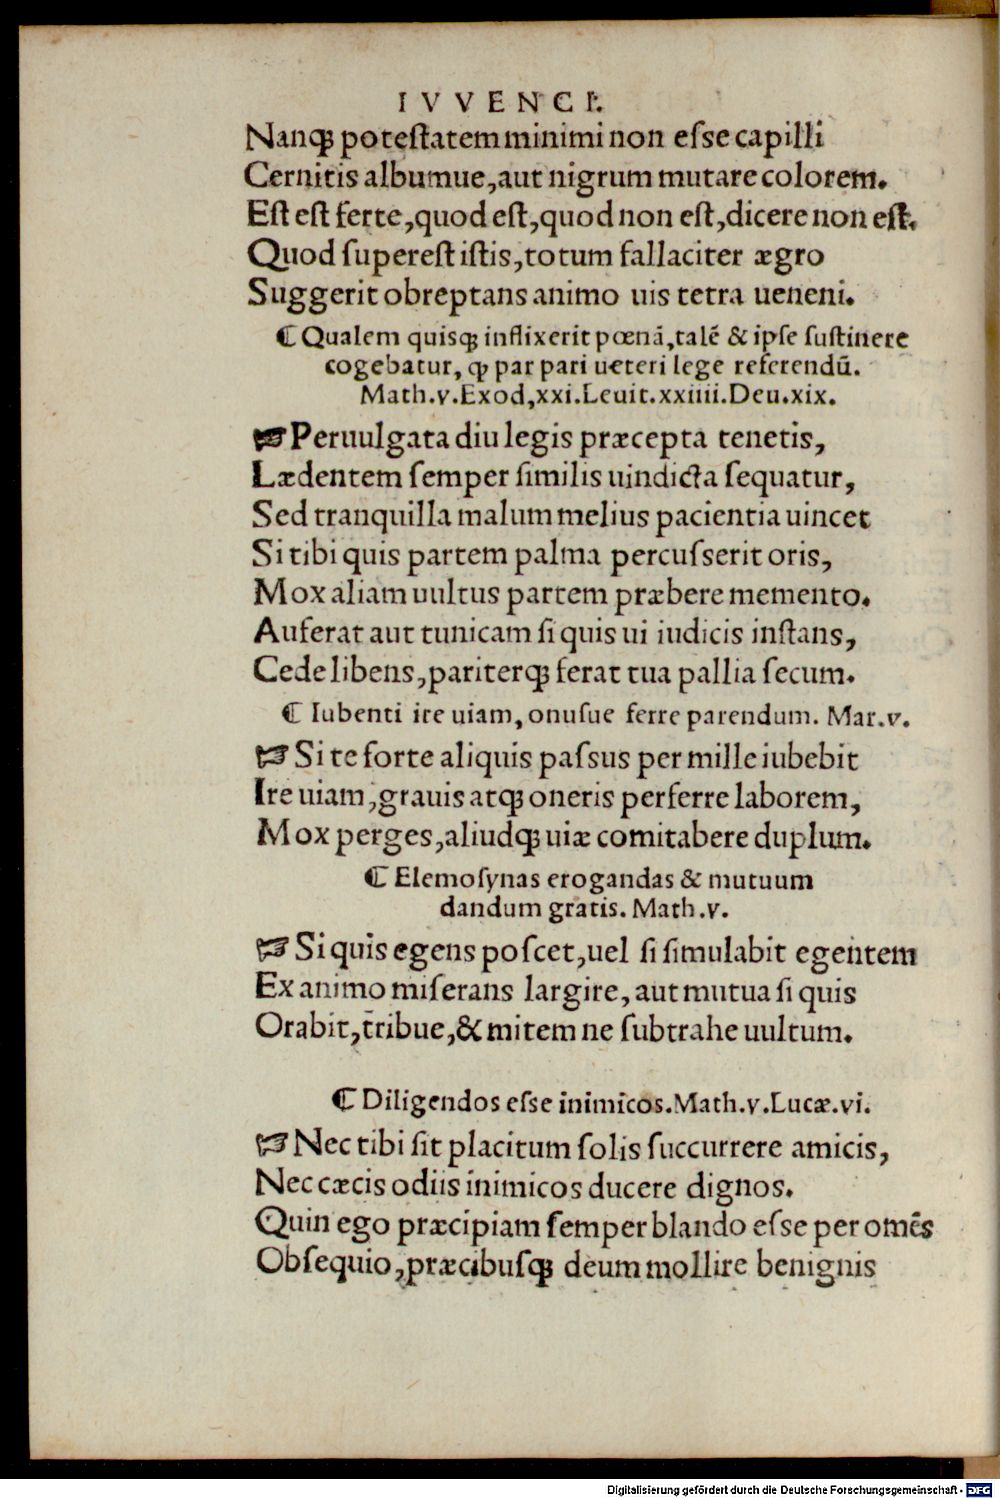 IVVENCI.
Nanqꝫ poteſtatem minimi non eſse capilli
Cernitis albumue, aut nigrum mutare colorem.
Eſt eſt ferte, quod eſt, quod non eſt, dicere non eſt.
Quod ſupereſt iſtis, totum fallaciter ægro
Suggerit obreptans animo uis tetra ueneni.
⸿ Qualem quisqꝫ inflixerit pœnã, talẽ & ipſe ſuſtinere
cogebatur, ꝙ par pari ueteri lege referendũ.
Math.v.Exod,xxi.Leuit.xxiiii.Deu.xix.
☞ Peruulgata diu legis præcepta tenetis,
Lædentem ſemper ſimilis uindicta ſequatur,
Sed tranquilla malum melius pacientia uincet
Si tibi quis partem palma percuſserit oris,
Mox aliam uultus partem præbere memento.
Auferat aut tunicam ſi quis ui iudicis inſtans,
Cede libens, pariterqꝫ ferat tua pallia ſecum.
⸿ Iubenti ire uiam, onuſue ferre parendum. Mar.v.
☞ Si te forte aliquis paſsus per mille iubebit
Ire uiam, grauis atqꝫ oneris perferre laborem,
Mox perges, aliudqꝫ uiæ comitabere duplum.
⸿ Elemoſynas erogandas & mutuum
dandum gratis. Math.v.
☞ Si quis egens poſcet, uel ſi ſimulabit egentem
Ex animo miſerans largire, aut mutua ſi quis
Orabit, tribue, & mitem ne ſubtrahe uultum.
⸿ Diligendos eſse inimicos. Math.v.Lucæ.vi.
☞ Nec tibi ſit placitum ſolis ſuccurrere amicis,
Nec cæcis odiis inimicos ducere dignos.
Quin ego præcipiam ſemper blando eſse per omẽs
Obſequio, præcibuſqꝫ deum mollire benignis
Digitalisierung gefördert durch die Deutsche Forschungsgemeinschaft - DFG